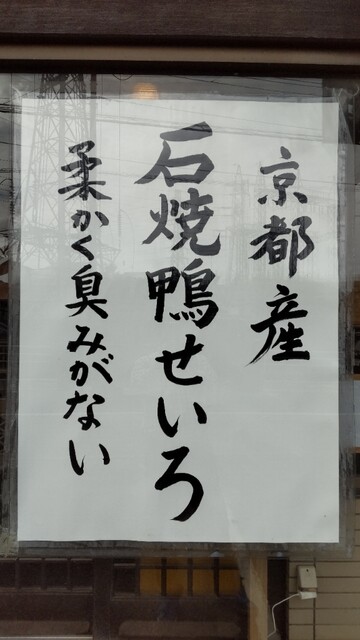 京都産
石焼鴨せいろ
柔かく臭みがない